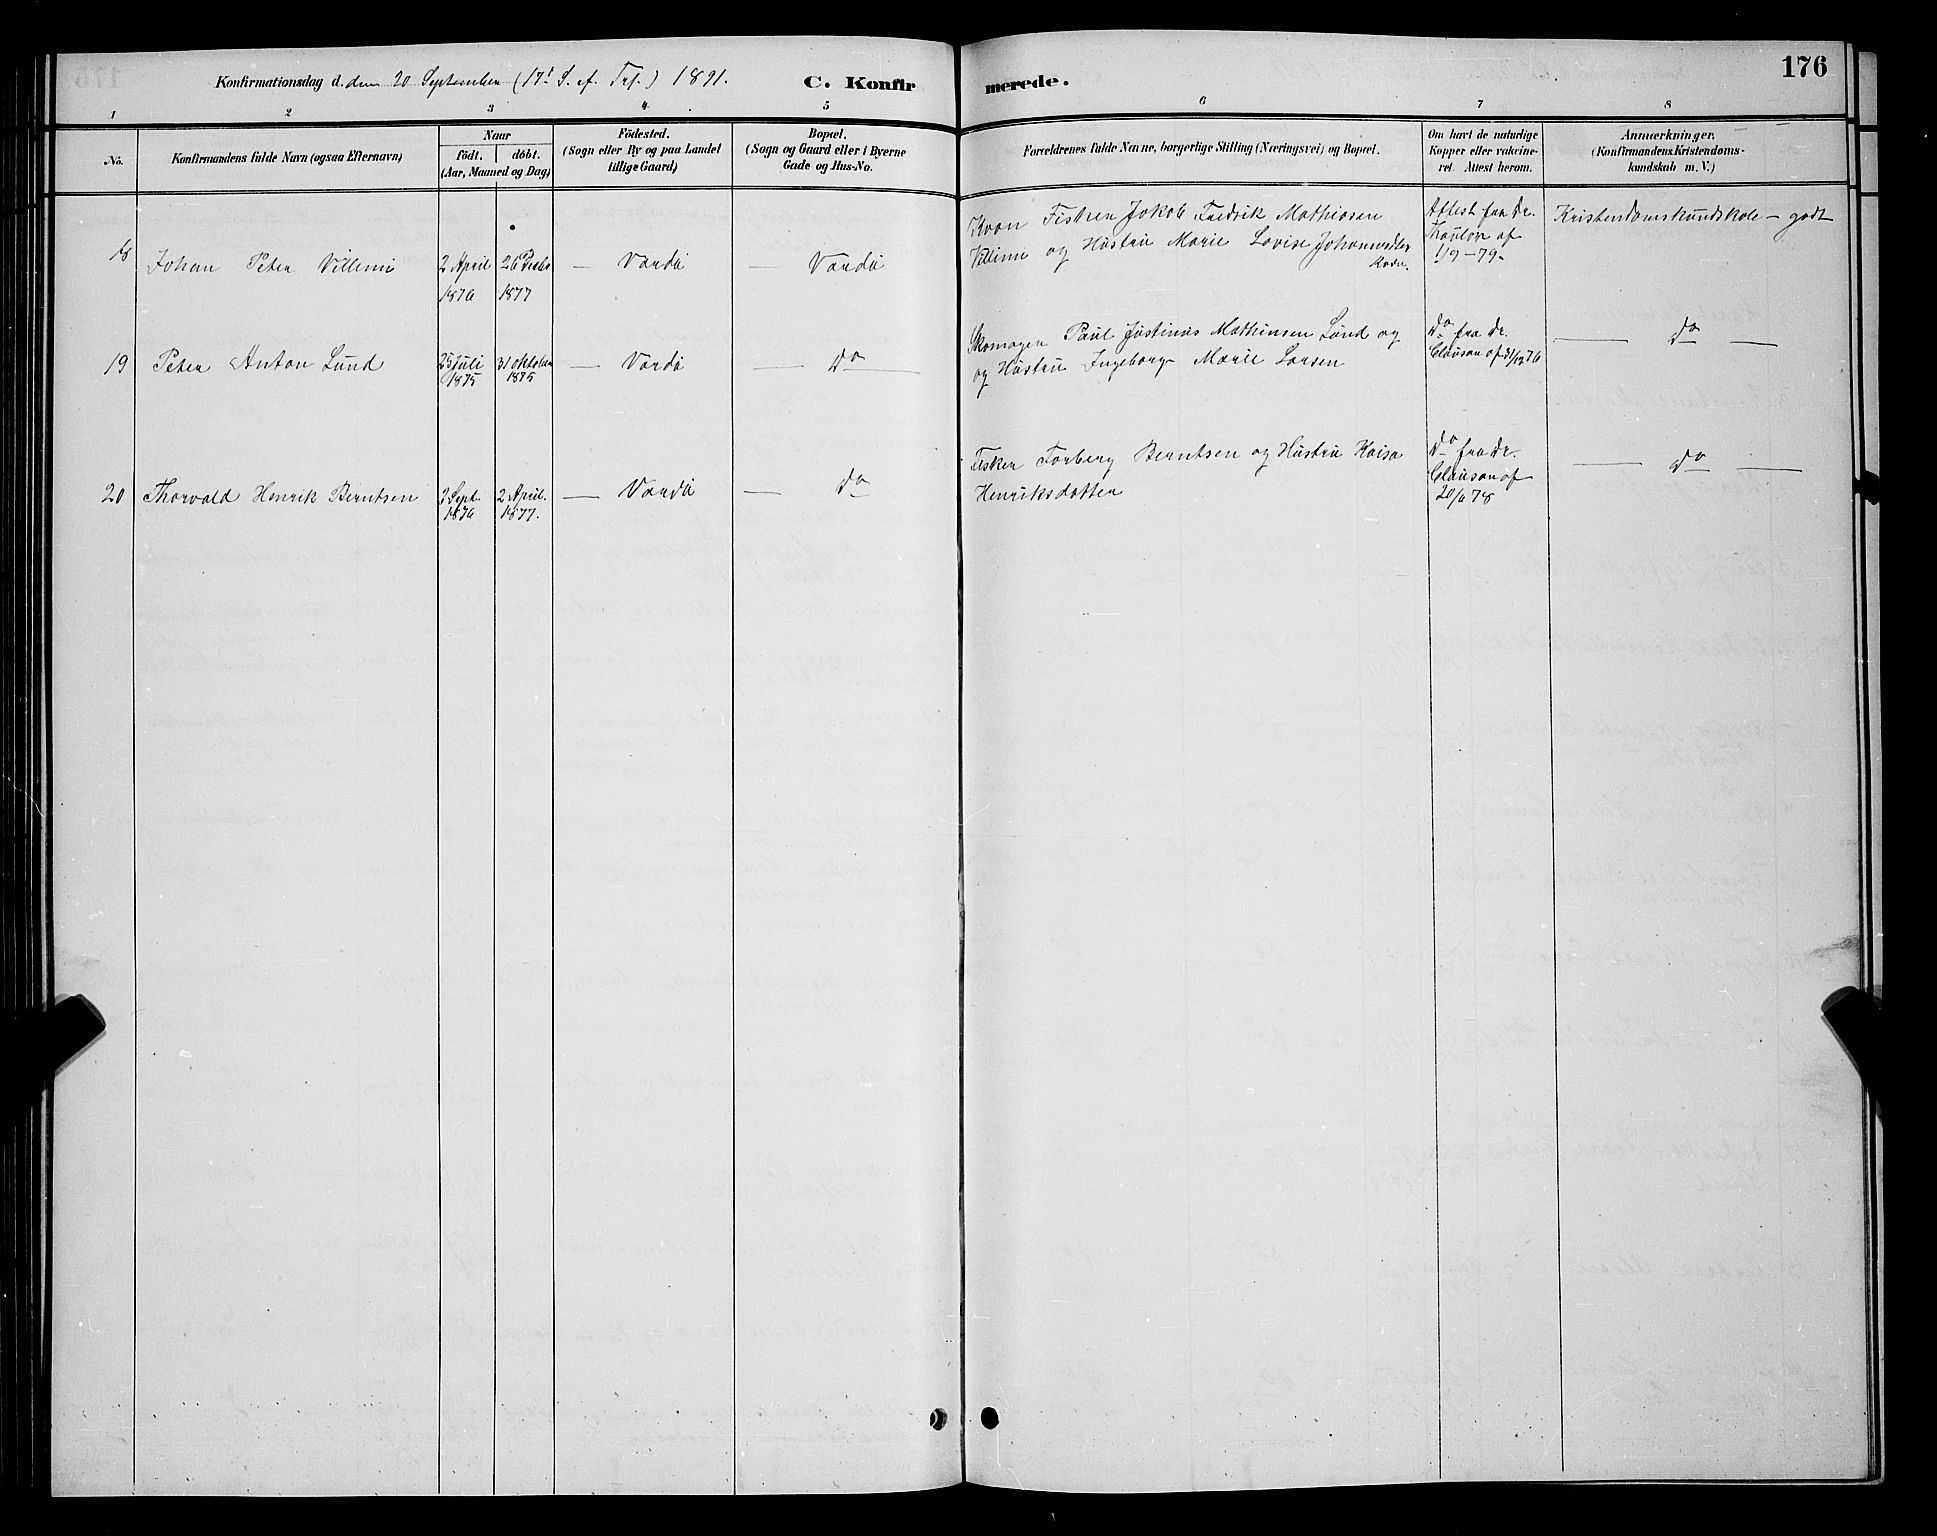 176
Konfirmationsdag d. den 20 September (17! S. ef. Trf.) 1891. C. Konfirmerede.
1 2 3 4 5 6 7 8
No.
Konfirmandens fulde Navn (ogsaa Efternavn)
Naar
födt. döbt.
(Aar, Maaned og Dag)
Födested.
(Sogn eller By og paa Landet
tillige Gaard)
Bopæl.
(Sogn og Gaard eller i Byerne
Gade og Hus-No.
Forældrenes fulde Navne, borgerlige Stilling (Næringsvei) og Bopæl.
Om havt de naturlige
Kopper eller vakcine-
ret. Attest herom.
Anmærkninger.
(Konfirmandens Kristendoms-
kundskab m. V.)
18
Johan Peter Villimi
2 April
1876
26
1877
— Vardö
— Vardö
Kvæn Fisker Jokob Fredrik Mathiasen
Villimi og Hustru Marie Lovise
Attest fra Dr.
af
1/9-79.
Kristendomskundskab — godt
19
Peter Anton Lund
25 Juli
1875
31 Oktober
1875
— Vardö
— Do —
Skomager Paul Justinus Mathinsen Lund og
og Hustru Ingeborg Marie Larsen
Do fra Dr.
Clausen af 31/12 76
— Do —
20
Thorvald Henrik Berntsen
3 Sept.
1876
2 April.
1877.
— Vardö
— Do
Fisker Torberg Berntsen og Hustru Kaisa
Henriksdatter
Do fra Dr.
Clausen af
20/6 78
— Do —